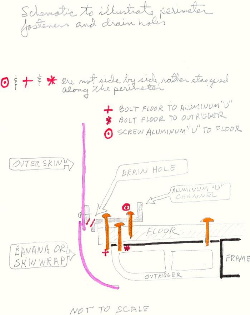 Schematic to illustrate perimeter
fasteners and drain holes
⊙ & + & * are not side by side rather staggered
along the perimeter
+ BOLT FLOOR TO ALUMINUM "U"
* BOLT FLOOR TO OUTRIGGER
⊙ SCREW ALUMINUM "U" TO FLOOR
OUTER SKIN
DRAIN HOLE
ALUMINUM "U"
CHANNEL
FLOOR
BANANA OR
SKIN WRAP
OUTRIGGER
FRAME
NOT TO SCALE